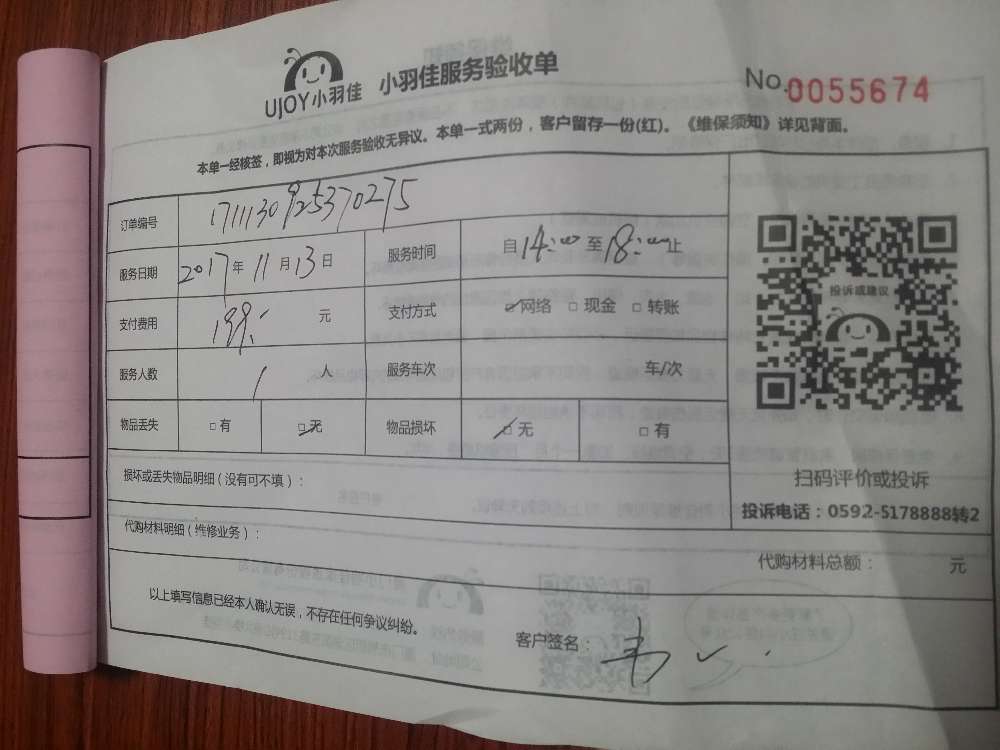 UJOY小羽佳 小羽佳服务验收单 No.0055674
本单一经核签，即视为对本次服务验收无异议。本单一式两份，客户留存一份(红)。《维保须知》详见背面。
订单编号 1711130925370275
服务日期 2017年11月13日 服务时间 自14:00至18:00止
支付费用 198.- 元 支付方式 ☑网络 □现金 □转账
服务人数 1 人 服务车次 车/次
物品丢失 □有 ☑无 物品损坏 ☑无 □有
投诉或建议
扫码评价或投诉
投诉电话：0592-5178888转2
损坏或丢失物品明细（没有可不填）：
代购材料明细（维修业务）：
代购材料总额： 元
以上填写信息已经本人确认无误，不存在任何争议纠纷。
客户签名：